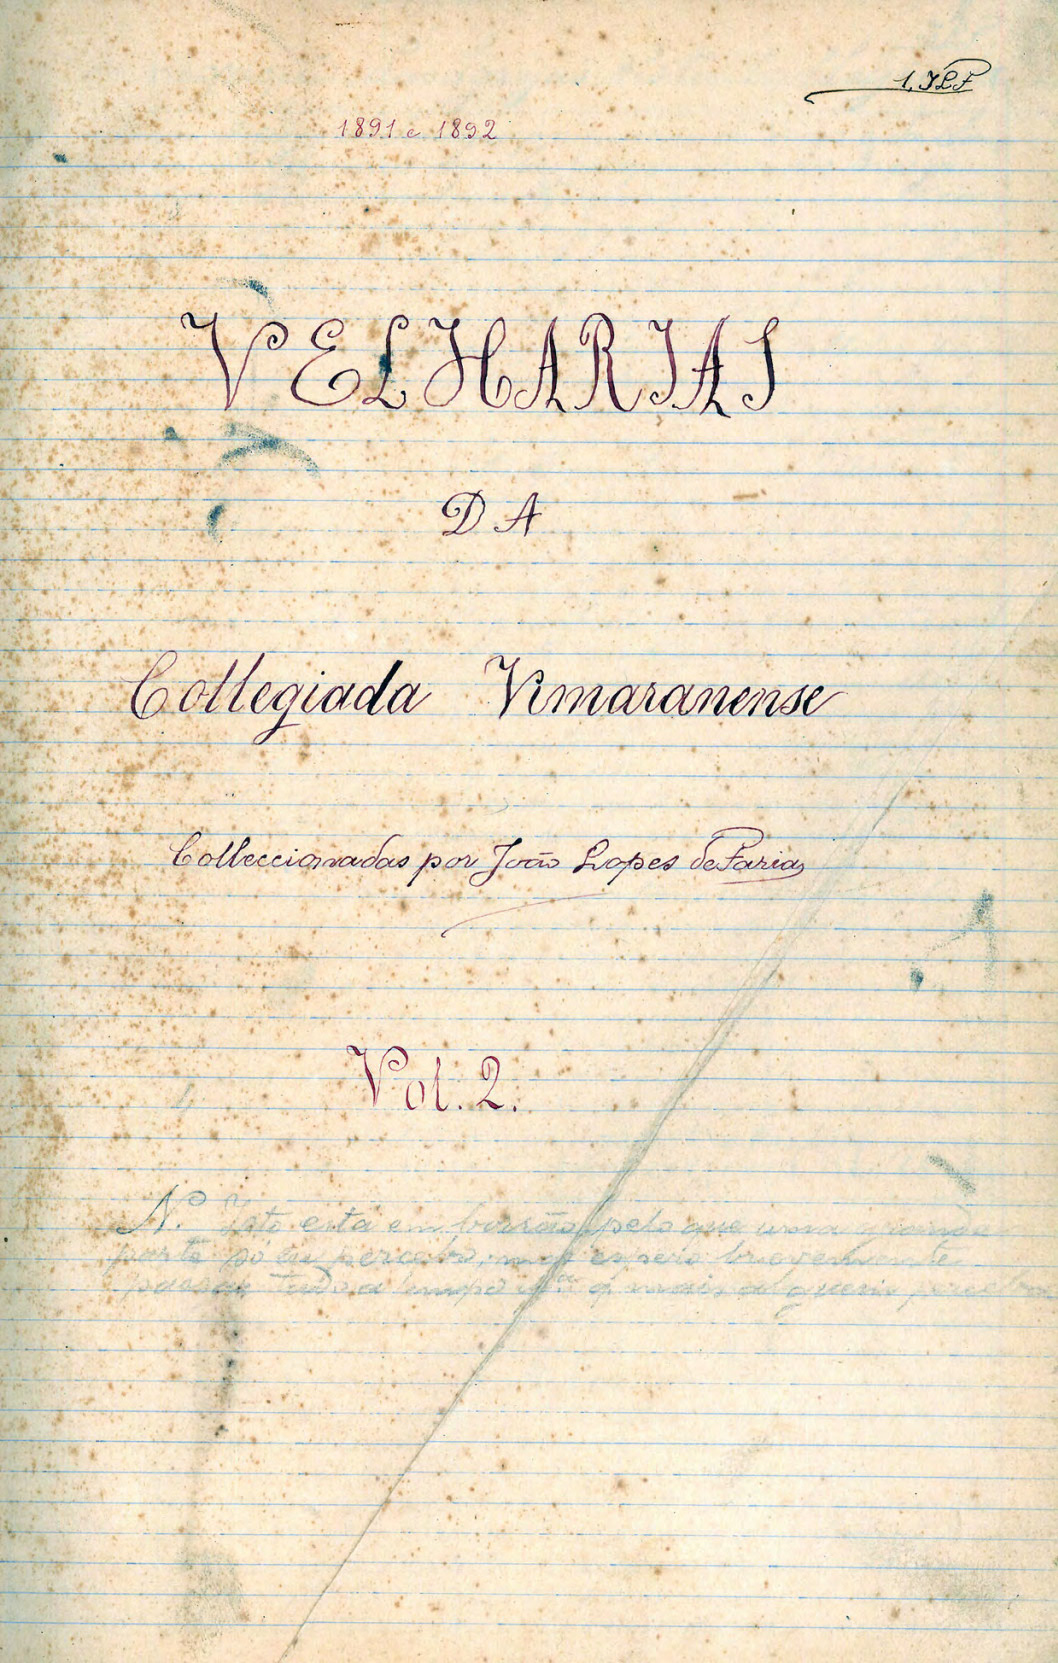 1. JLF
1891 e 1892
VELHARIAS
DA
Collegiada Vimaranense
Colleccionadas por João Lopes de Faria
Vol. 2.
N.º isto está em borrão, pelo que uma grande
parte só eu percebo, mas espero brevemente
passar tudo a limpo p.ª q mais alguem perceba